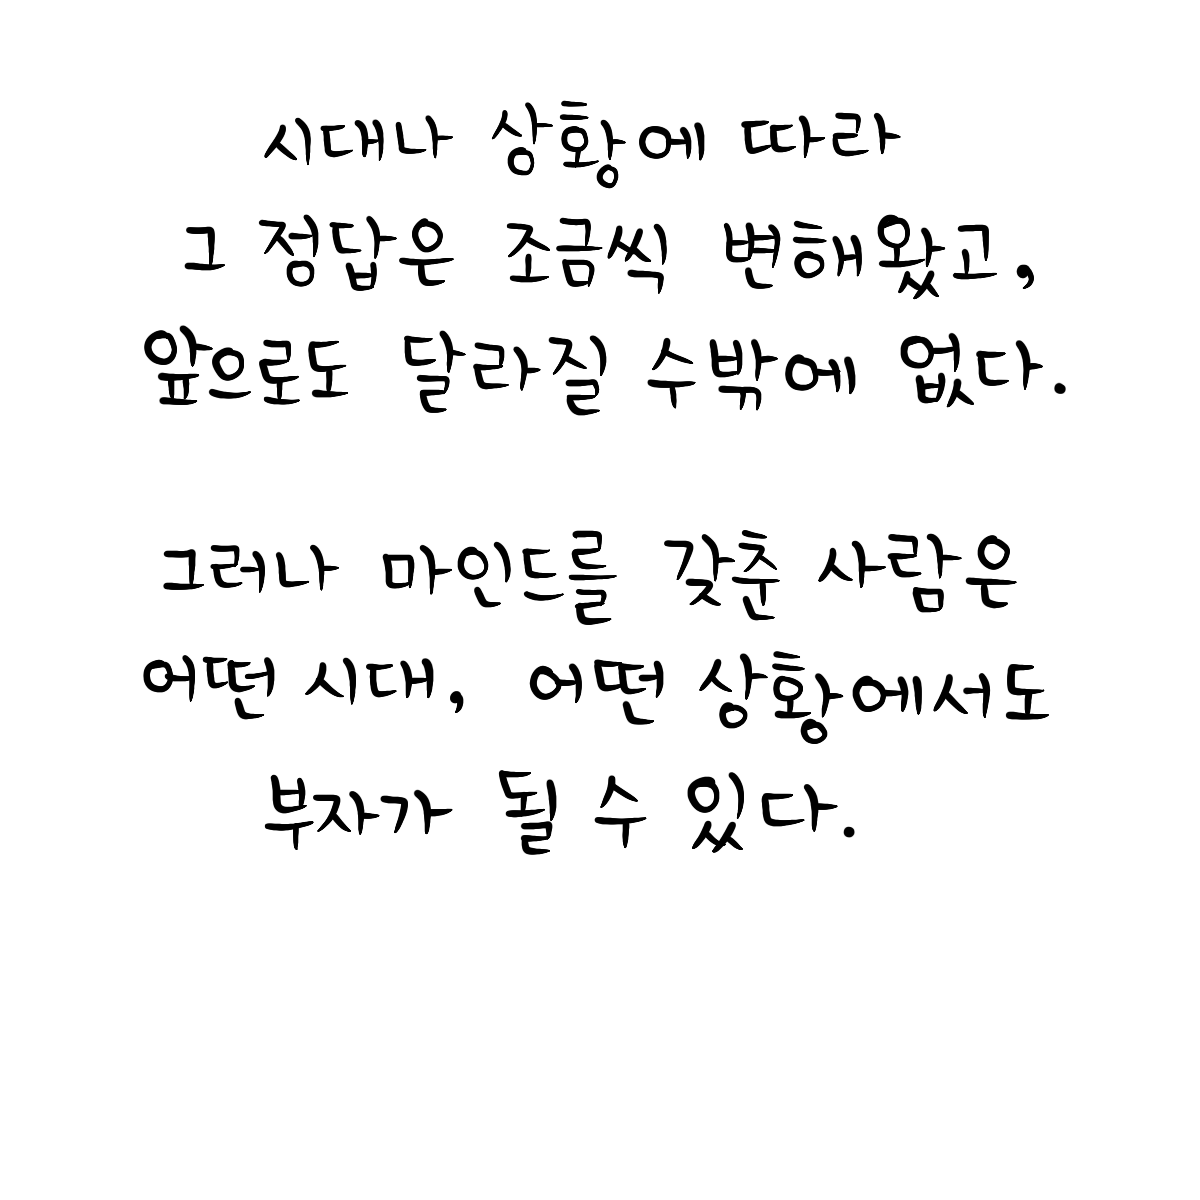 시대나 상황에 따라
그 정답은 조금씩 변해왔고,
앞으로도 달라질 수밖에 없다.
그러나 마인드를 갖춘 사람은
어떤 시대, 어떤 상황에서도
부자가 될 수 있다.